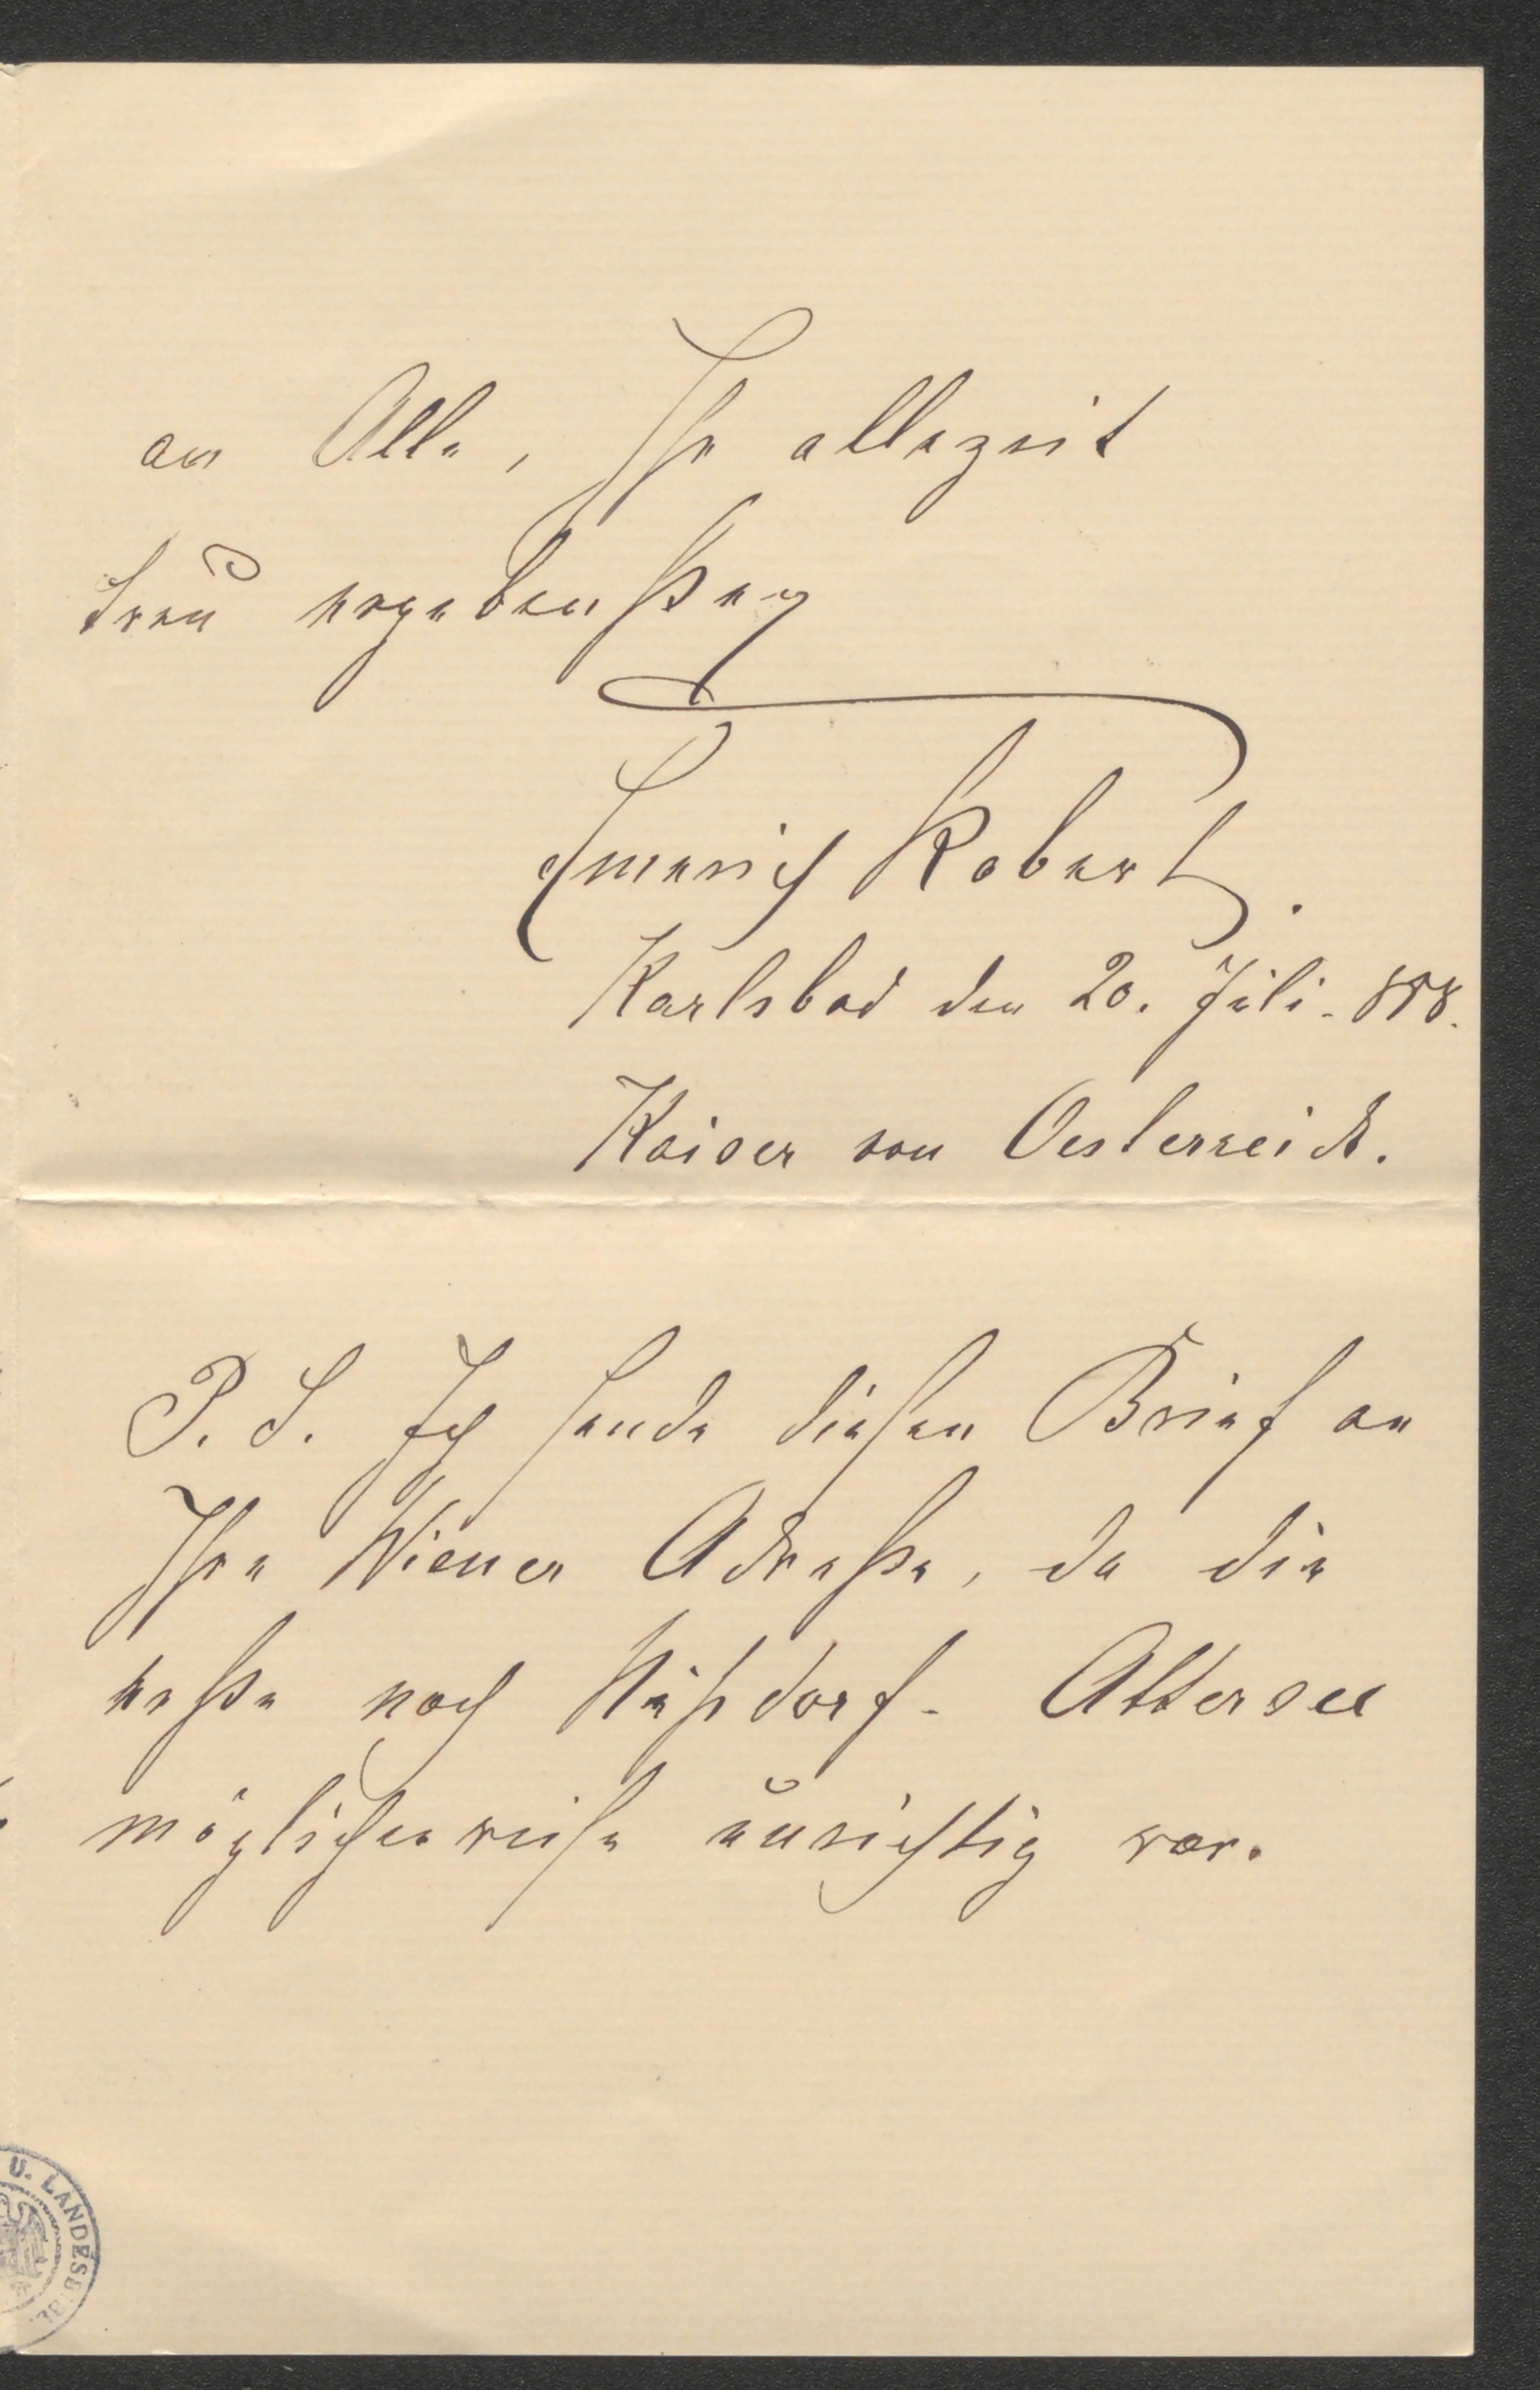 an Alle, Ihr allezeit
treu ergebenster
Emerich Robert.
Karlsbad den 20. Juli. 888.
Kaiser von Oesterreich.
P. S. Ich sende diesen Brief an
Ihre Wiener Adresse, da die
erste nach Nußdorf - Attersee
möglicherweise unrichtig war.
U. LANDESBIBL.